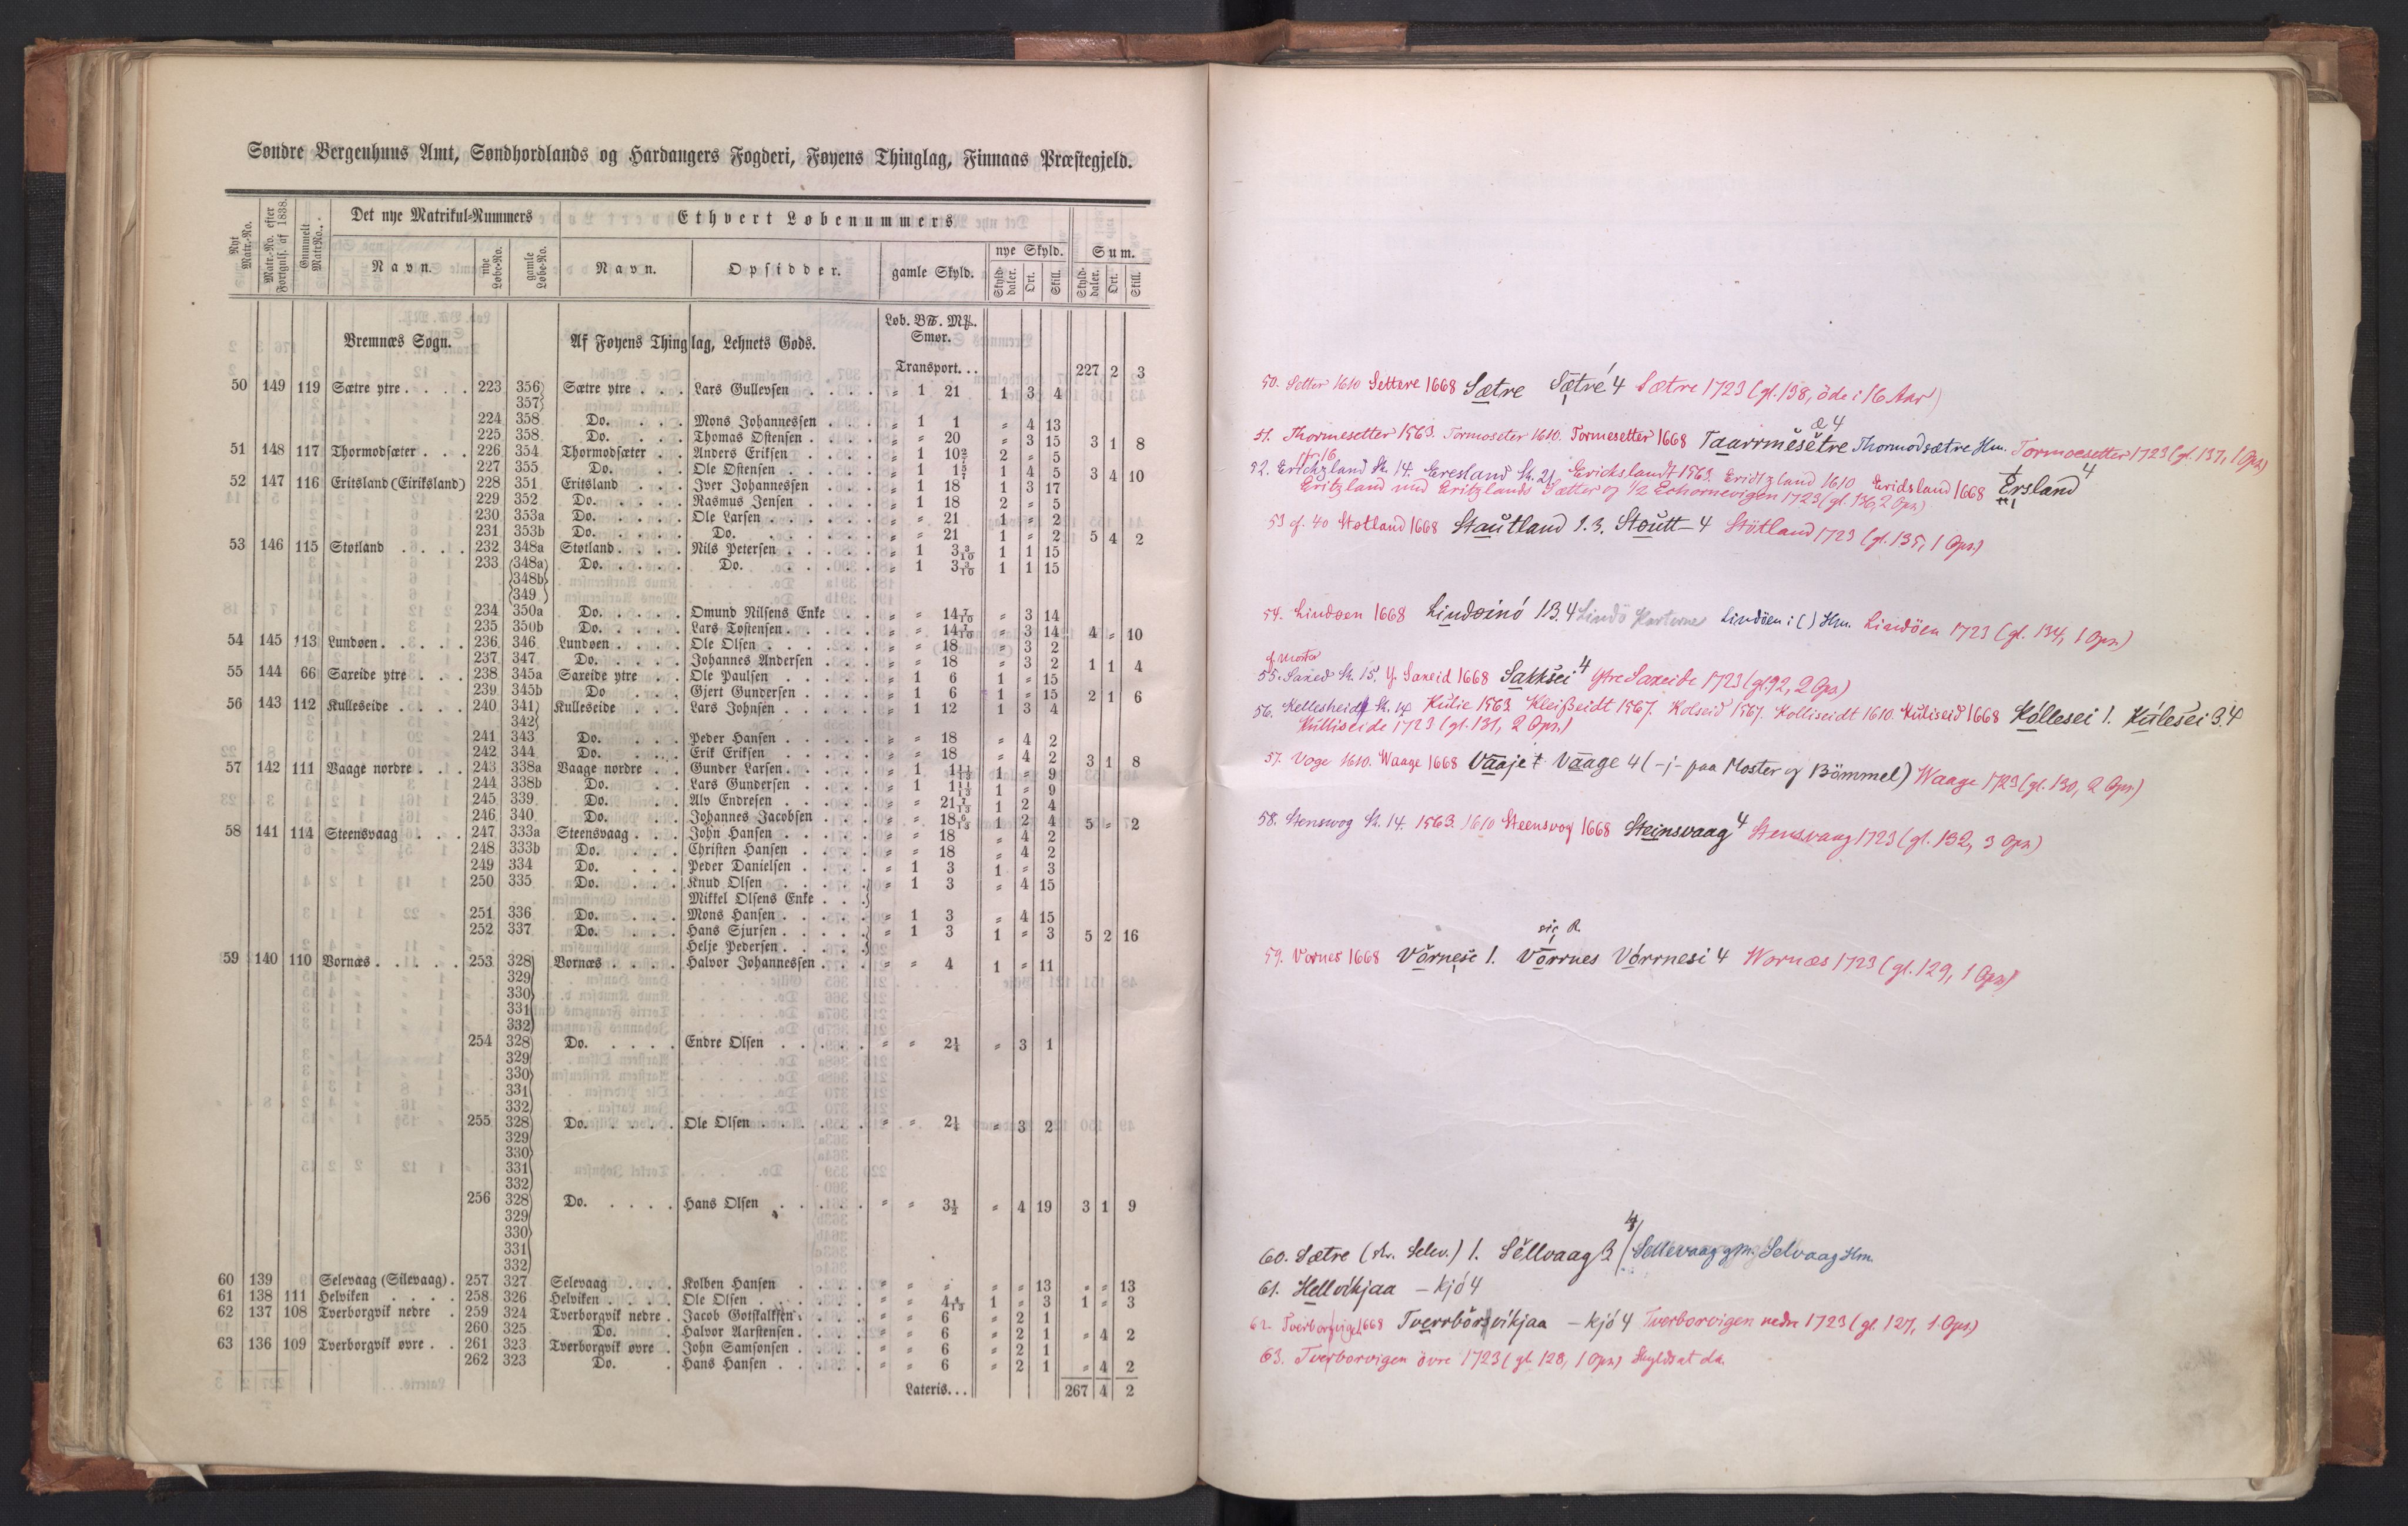 Søndre Bergenhuus Amt, Søndhordlands og Hardangers Fogderi, Føyens Thinglag, Finnaas Præstegjeld.
Nyt Matr.-No. Matr.-No. efter Fortegnelse af 1838. Gammelt Matr.-No. Det nye Matrikul-Nummers Ethvert Løbenummers
Navn. nye Løbe-No. gamle Løbe-No. Navn. Opsidder. gamle Skyld. nye Skyld. Sum.
Skylddaler. Ort. Skill. Skylddaler. Ort. Skill.
Bremnæs Sogn. Af Føyens Thinglag, Lehnets Gods. Løb. B℔. M℔. Smør.
Transport... 227 2 3
50 149 119 Sætre ytre. . . . 223 356 Sætre ytre . . . Lars Gullevsen . . . . " 1 21 1 3 4
357
224 358 Do. . . . Mons Johannessen . . . " 1 1 " 4 13
225 358 Do. . . . Thomas Østensen . . . . " " 20 " 3 15 3 1 8
51 148 117 Thormodsæter . . . 226 354 Thormodsæter . . Anders Eriksen . . . . " 1 10 2/7 2 " 5
227 355 Do. . . . Ole Østensen . . . . " 1 1 5/7 1 4 5 3 4 10
52 147 116 Eritsland (Eiriksland) 228 351 Eritsland . . . Iver Johannessen . . . " 1 18 1 3 17
229 352 Do. . . . Rasmus Jensen . . . . " 1 18 2 " 5
230 353a Do. . . . Ole Larsen . . . . " " 21 1 " 2
231 353b Do. . . . Do. . . . . " " 21 1 " 2 5 4 2
53 146 115 Støtland . . . . 232 348a Støtland . . . . Nils Petersen . . . . " 1 3 3/10 1 1 15
233 348a Do. . . . Do. . . . . " 1 3 3/10 1 1 15
348b
349
234 350a Do. . . . Omund Nilsens Enke . . " " 14 7/10 " 3 14
235 350b Do. . . . Lars Tostensen . . . . " " 14 7/10 " 3 14 4 " 10
54 145 113 Lundøen . . . . 236 346 Lundøen . . . . Ole Olsen . . . . " " 18 " 3 2
237 347 Do. . . . Johannes Andersen . . . " " 18 " 3 2 1 1 4
55 144 66 Sareide ytre . . . 238 345a Sareide ytre . . Ole Paulsen . . . . " 1 6 1 " 15
239 345b Do . . . Gjert Gundersen . . . . " 1 6 1 " 15 2 1 6
56 143 112 Kulleseide . . . . 240 341 Kulleseide . . . Lars Johnsen . . . . " 1 12 1 3 4
342
241 343 Do. . . . Peder Hansen . . . . " " 18 " 4 2
242 344 Do. . . . Erik Eriksen . . . . " " 18 " 4 2 3 1 8
57 142 111 Vaage nordre . . . 243 338a Vaage nordre . . Gunder Larsen . . . . " 1 1 11/13 1 " 9
244 338b Do. . . . Lars Gundersen . . . . " 1 1 11/13 1 " 9
245 339 Do. . . . Alv Endresen . . . . " " 21 7/13 1 2 4
246 340 Do. . . . Johannes Jacobsen . . . " " 18 6/13 1 2 4 5 " 2
58 141 114 Steensvaag . . . 247 333a Steensvaag . . . John Hansen . . . . " " 18 " 4 2
248 333b Do. . . . Christen Hansen . . . . " " 18 " 4 2
249 334 Do. . . . Peder Danielsen . . . . " 1 3 1 " 3
250 335 Do. . . . Knud Olsen . . . . " 1 3 " 4 15
Mikkel Olsens Enke . . .
251 336 Do. . . . Mons Hansen . . . . " 1 3 " 4 15
252 337 Do. . . . Hans Sjursen . . . . " 1 3 1 " 3 5 2 16
Helje Pedersen . . . .
59 140 110 Vornæs . . . . 253 328 Vornæs . . . . Halvor Johannessen . . . " " 4 1 " 11
329
330
331
332
254 328 Do. . . . Endre Olsen . . . . " " 2 1/4 " 3 1
329
330
331
332
255 328 Do. . . . Ole Olsen . . . . " " 2 1/4 " 3 2
329
330
331
332
256 328 Do. . . . Hans Olsen . . . . " " 3 1/2 " 4 19 3 1 9
329
330
331
332
60 139 Selevaag (Silevaag) . 257 327 Selevaag . . . Kolben Hansen . . . . " " " " " 13 " " 13
61 138 111 Helviken . . . . 258 326 Helviken . . . . Ole Olsen . . . . " " 4 4/13 1 " 3 1 " 3
62 137 108 Tverborgvik nedre . 259 324 Tverborgvik nedre . Jacob Gotskalksen . . . " " 6 " 2 1
260 325 Do. . Halvor Aarstensen . . . " " 6 " 2 1 " 4 2
63 136 109 Tverborgvik øvre . . 261 323 Tverborgvik øvre . John Samsonsen . . . . " " 6 " 2 1
262 323 Do. . Hans Hansen . . . . " " 6 " 2 1 " 4 2
Lateris... 267 4 2
50. Setter 1610 Settere 1668 Sætre Sætré 4 Sætre 1723 (gl. 138, öde i 16 Aar)
æ 4
51. Thormesetter 1563. Tormoseter 1610. Tormesetter 1668 Taarrmesetre Thormodsætre Hm. Tormoesetter 1723 (gl. 137, 1 Ops.)
52. Erichzland St. 14. Eresland St. 21. Erichslandt 1563. Eridtzland 1610 Eridsland 1668 Ersland 4
Eritzland med Eritzlands Sætter og 1/2 Eshornevigen 1723 (gl. 136, 2 Ops.)
53 cf. 40 Støtland 1668 Stautland 1. 3. Stoutt- 4 Stötland 1723 (gl. 135, 1 Ops.)
54. Lindøen 1668 Lindøinó 1 3. 4 Lindö Karterne Lindöen i () Hm. Lindöen 1723 (gl. 134, 1 Ops.)
cf. Moster
55. Saxed St. 15. Y. Saxeid 1668 Sakksei 4 Ytre Saxeide 1723 (gl. 92, 2 Ops.)
56. Kellesheid St. 14 Kulie 1563. Kleißeidt 1567. Kolseid 1567. Kolliseidt 1610. Kuliseid 1668 Kóllesei 1. Kúlesei 3. 4
Külliseide 1723 (gl. 131, 2 Ops.)
57. Voge 1610. Waage 1668 Vaaje 1 Vaage 4 (-j- paa Moster og Bömmel) Waage 1723 (gl. 130, 2 Ops.)
58. Stenswog St. 14. 1563. 1610 Steensvog 1668 Steinsvaag 4 Stensvaag 1723 (gl. 132, 3 Ops.)
sic R.
59. Vornes 1668 Vörnese 1. Vorrnes Vórrnesi 4 Wornæs 1723 (gl. 129, 1 Ops.)
60. Sætre (skr. Selev.) 1. Sellvaag 3 4/ Sellevaag gm. Selvaag Hm.
61. Hellvíkjaa – kjó 4
62. Tverborvigen 1668 Tverrbörvíkjaa – kjó 4 Tverborvigen nedre 1723 (gl. 127, 1 Ops.)
63. Tverborvigen övre 1723 (gl. 128, 1 Ops.) Skyldsat da.